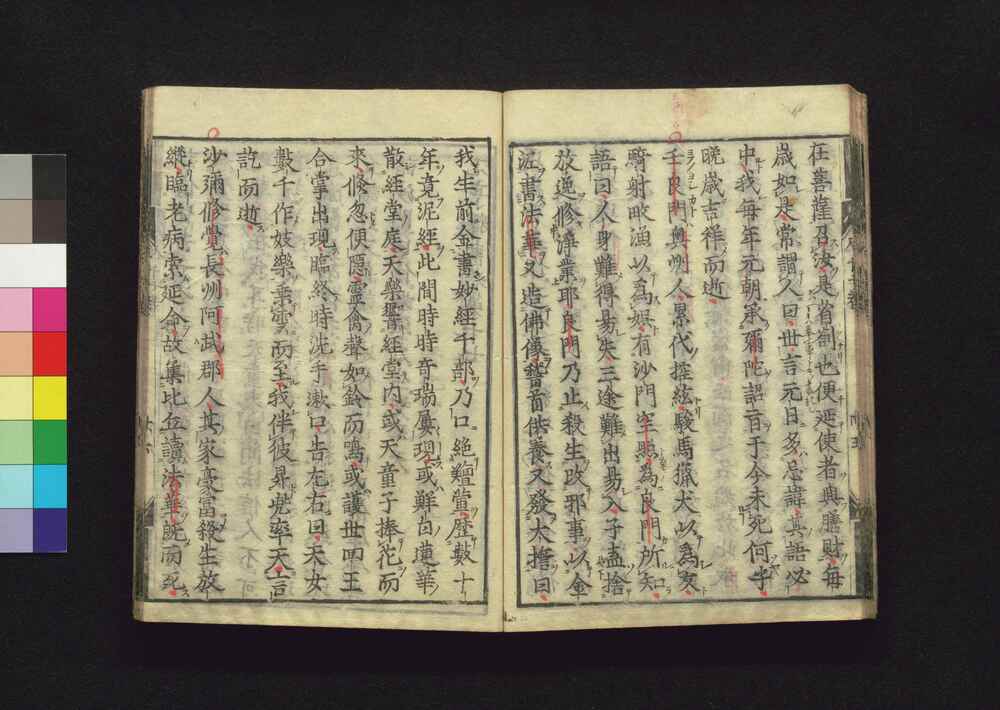 在善薩召汝是省劄也便延使者與膳財每
歲如是常謂人曰世言元日多忌諱其語必
中我每年元朝承彌陀詔百于今未死何乎
晚歲吉祥而逝
壬良門奧州人累代撰絃駿馬獵犬以為家
騎射畋漁以為娯有沙門空照為良門所知
語曰人身難得易失三途難出易入子盍捨
放逸修淨業耶良門乃止殺生改邪事以金
泥書法華又造佛像誓首供養又發大擔曰
我生前金書妙經千部乃口絶羶葷歷數十
年竟泥經此間時時奇瑞屢現或鮮白蓮華
散經堂庭天樂響經堂内或天童子捧花而
來倏忽便隱靈禽聲如鈴而鳴或護世四王
合掌出現臨終時洗手漱口告左右曰天女
數千作妓樂乗雲而至我伴彼昇兜率天言
訖而逝
沙彌修覺長州阿武郡人其家豪富殺生放
縱臨老病索延命故集比丘讀法華既而死